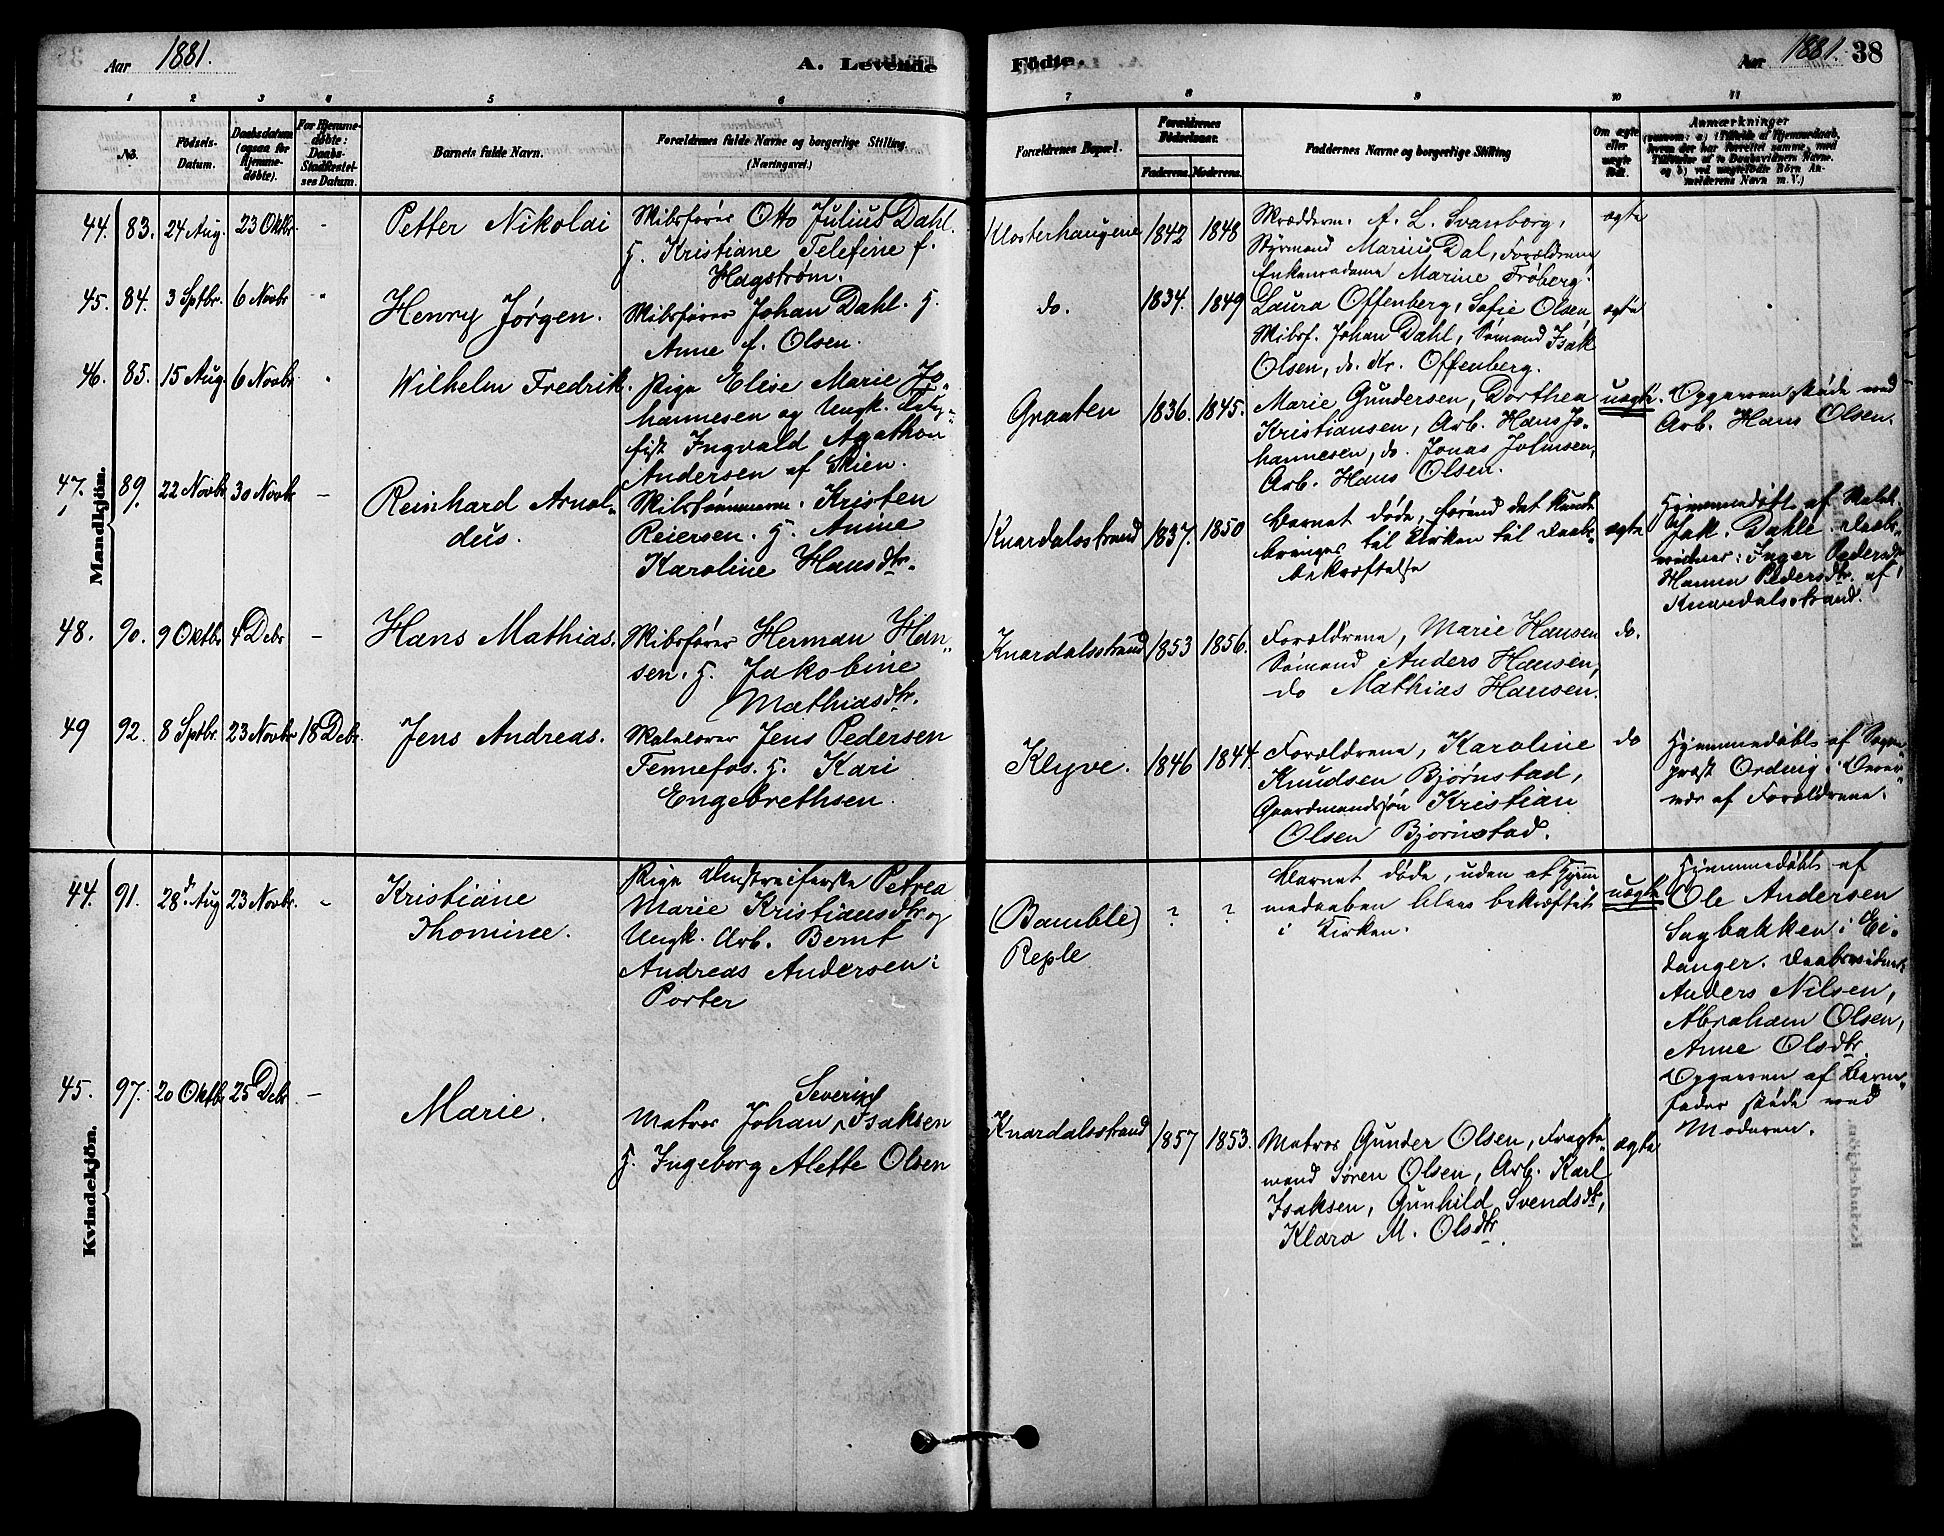 Aar 1881.
A. Levende
Födte.
Aar 1881. 38
1 2 3 4 5 6 7 8 9 10 11
No.
Födsels-
Datum.
Daabsdatum
(ogsaa for
Hjemme-
döbte).
For Hjemme-
döbte:
Daabs-
Stadfæstel-
ses Datum.
Barnets fulde Navn.
Forældrenes fulde Navne og borgerlige Stilling.
(Næringsvei.)
Forældrenes Bopæl.
Forældrenes
Födselsaar.
Faderens. Moderens.
Faddernes Navne og borgerlige Stilling
Om ægte
eller
uægte
födt.
Anmærkninger
Mandkjön.
44. 83. 24 Aug. 23 Oktbr. -
Petter Nikolai
Skibsfører Otto Julius Dahl.
H. Kristiane Telefine f.
Hagstrøm.
Klosterhaugene 1842 1848
Skrædderm. A. L. Svanborg,
Styrmand Marius Dal, Forældrene
Enkemadame Marine Frøberg.
ægte
45. 84. 3 Sptbr. 6 Novbr
Henry Jørgen.
Skibsfører Johan Dahl. H.
Anne f. Olsen.
do. 1834. 1849
Laura Offenberg, Sofie Olsen,
Skibsf. Johan Dahl, Sømand Isak
Olsen, do. Kr. Offenberg.
ægte
46. 85. 15 Aug. 6 Novbr
Wilhelm Fredrik.
Pige Elise Marie Jo-
hannesen og Ungk.
Ingvald Agathon
Andersen af Skien.
Graaten 1836. 1845.
Marie Gundersen, Dorthea
Kristiansen, Arb. Hans Jo-
hannesen, do. Jonas Johnsen,
Arb. Hans Olsen.
uægte.
Opgaven skede ved
Arb. Hans Olsen.
47. 89. 22 Novbr 30 Novbr -
Reinhard Arnol-
dus.
Skibstømmerm. Kristen
Reiersen. H. Anine
Karoline Hansdtr.
Knardalsstrand 1837. 1850
Barnet døde, førend det kunde
bringes til Kirken til Daabs-
bekræftelse
ægte
Hjemmedøbt af
Jak. Dahle. Daabs-
vidner: Inger Pedersdtr
Hanna Pedersdtr. af
Knardalsstrand.
48. 90. 9 Oktbr 4 Debr -
Hans Mathias.
Skibsfører Herman Han-
sen. H. Jakobine
Mathiasdtr.
Knardalsstrand 1853 1856.
Forældrene, Marie Hansen
Sømand Anders Hansen,
do Mathias Hansen.
do.
49 92. 8 Sptbr. 23 Novbr 18 Debr.
Jens Andreas.
Skolelærer Jens Pedersen
Fennefos. H. Kari
Engebrethsen.
Klyve. 1846 1844.
Forældrene, Karoline
Knudsen Bjørnstad,
Gaardmandssøn Kristian
Olsen Bjørnstad.
do
Hjemmedøbt af Sogne-
præst Ording i Overvær-
af Forældrene.
Kvindekjön.
44. 91. 28de Aug 23 Novbr. -
Kristiane
Thomine.
Pige Omstreiferske Petrea
Marie Kristiansdtr og
Ungk. Arb. Bernt
Andreas Andersen i
Porter
(Bamble)
Reple
? ?
Barnet døde, uden at Hjem
medaaben blev bekræftet
i Kirken.
uægte
Hjemmedøbt af
Ole Andersen
Sagbakken i Ei-
danger. Daabsvidner
Anders Nilsen,
Abraham Olsen,
Anne Olsdtr.
Opgaven af Barne-
fader skede ved
Moderen.
45. 97. 20 Oktbr 25 Debr -
Marie.
Severin
Matros Johan Isaksen
H. Ingeborg Alette Olsen
Knardalsstrand 1857 1853.
Matros Gunder Olsen, Fragte-
mand Søren Olsen, Arb. Karl
Isaksen, Gunhild Svendsdtr,
Klara M. Olsdtr.
ægte